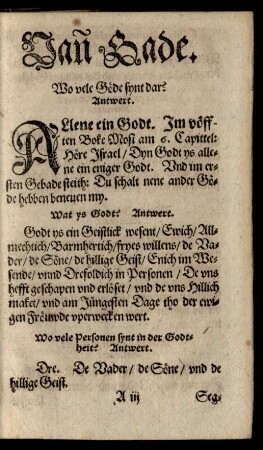 Van Gade.
Wo vele Göde synt dar?
Antwert.
ALlene ein Godt. Im vöff-
ten Boke Mosi am 6. Capittel:
Höre Israel / Dyn Godt ys alle-
ne ein einiger Godt. Vnd im er-
sten Gebade steith: Du schalt nene ander Gö-
de hebben beneuen my.
Wat ys Godt? Antwert.
Godt ys ein Geistlick wesent / Ewich / All-
mechtich / Barmhertich / fryes willens / de Va-
der / de Söne / de hillige Geist / Enich im We-
sende / vnnd Drefoldich in Personen / De vns
hefft geschapen vnd erlöset / vnd de vns Hillich
maket / vnd am Jüngesten Dage tho der ewi-
gen Fröuwde vperwecken wert.
Wo vele Personen synt in der Godt-
heit? Antwert.
Dre. De Vader / de Söne / vnd de
hillige Geist.
A iij Seg-